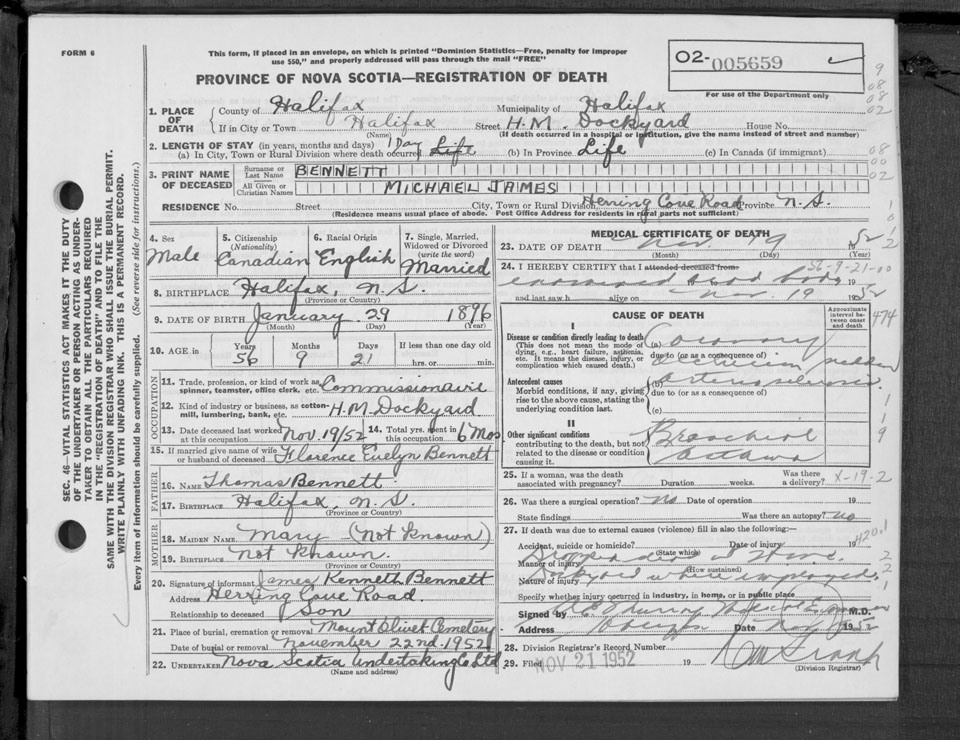 FORM 6
This form, if placed in an envelope, on which is printed "Dominion Statistics—Free, penalty for improper
use $50," and properly addressed will pass through the mail "FREE"
PROVINCE OF NOVA SCOTIA—REGISTRATION OF DEATH
O2-005659
For use of the Department only
1. PLACE OF DEATH County of Halifax Municipality of Halifax
If in City or Town Halifax Street H.M. Dockyard House No.
(Name) (If death occurred in a hospital or institution, give the name instead of street and number)
2. LENGTH OF STAY (in years, months and days) 1 Day
(a) In City, Town or Rural Division where death occurred Life (b) In Province Life (c) In Canada (if immigrant)
3. PRINT NAME OF DECEASED Surname or Last Name BENNETT
All Given or Christian Names MICHAEL JAMES
RESIDENCE No. Street City, Town or Rural Division Herring Cove Road Province N.S.
(Residence means usual place of abode. Post Office Address for residents in rural parts not sufficient)
SEC. 46—VITAL STATISTICS ACT MAKES IT THE DUTY
OF THE UNDERTAKER OR PERSON ACTING AS UNDER-
TAKER TO OBTAIN ALL THE PARTICULARS REQUIRED
IN THE "REGISTRATION OF DEATH" AND TO FILE THE
SAME WITH THE DIVISION REGISTRAR WHO SHALL ISSUE THE BURIAL PERMIT.
WRITE PLAINLY WITH UNFADING INK. THIS IS A PERMANENT RECORD.
Every item of information should be carefully supplied. (See reverse side for instructions.)
4. Sex Male
5. Citizenship (Nationality) Canadian
6. Racial Origin English
7. Single, Married, Widowed or Divorced (write the word) Married
8. BIRTHPLACE Halifax, N.S.
(Province or Country)
9. DATE OF BIRTH January 29 1896
(Month) (Day) (Year)
10. AGE in Years 56 Months 9 Days 21 If less than one day old hrs. or min.
OCCUPATION
11. Trade, profession, or kind of work as spinner, teamster, office clerk, etc. Commissionaire
12. Kind of industry or business, as cotton-mill, lumbering, bank, etc. H.M. Dockyard
13. Date deceased last worked at this occupation Nov. 19/52 14. Total yrs. spent in this occupation 6 Mos
15. If married give name of wife or husband of deceased Florence Evelyn Bennett
FATHER
16. NAME Thomas Bennett
17. BIRTHPLACE Halifax, N.S.
(Province or Country)
MOTHER
18. MAIDEN NAME Mary (Not Known)
19. BIRTHPLACE Not Known.
(Province or Country)
20. Signature of informant James Kennett Bennett
Address Herring Cove Road.
Relationship to deceased Son
21. Place of burial, cremation or removal Mount Olivet Cemetery
Date of burial or removal November 22nd 1952
22. UNDERTAKER Nova Scotia Undertaking Co Ltd
(Name and address)
MEDICAL CERTIFICATE OF DEATH
23. DATE OF DEATH Nov. 19 1952
(Month) (Day)
24. I HEREBY CERTIFY that I attended deceased from 56-9-21-00
examined dead body
and last saw h alive on Nov. 19 1952
CAUSE OF DEATH
Approximate interval between onset and death
I
Disease or condition directly leading to death
(This does not mean the mode of
dying, e.g., heart failure, asthenia,
etc. It means the disease, injury, or
complication which caused death.)
(a) Coronary
due to (or as a consequence of)
occlusion sudden
Antecedent causes
Morbid conditions, if any, giving
rise to the above cause, stating the
underlying condition last.
(b) Arteriosclerosis
due to (or as a consequence of)
(c)
II
Other significant conditions
contributing to the death, but not
related to the disease or condition
causing it.
Bronchial
asthma
25. If a woman, was the death associated with pregnancy? Duration weeks. Was there a delivery? X-19-2
26. Was there a surgical operation? No Date of operation 19
State findings Was there an autopsy? no
27. If death was due to external causes (violence) fill in also the following:—
Accident, suicide or homicide? 19
(State which)
Manner of injury Dropped dead at
(How sustained)
Nature of injury Dockyard where employed.
Specify whether injury occurred in industry, in home, or in public place
Signed by Murray Medical Examiner M.D.
Address Halifax Date Nov 1952
28. Division Registrar's Record Number
29. Filed NOV 21 1952 19
(Division Registrar)